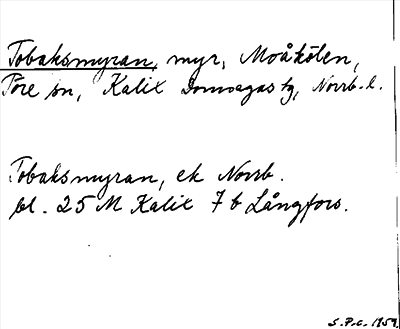 Tobaksmyran, myr, Moåkölen,
Töre sn, Kalix Domsagas tg, Norrb. l.
Tobaksmyran, ek Norrb.
bl. 25 M Kalix 7 b Långfors.
S.P.C. 1959.